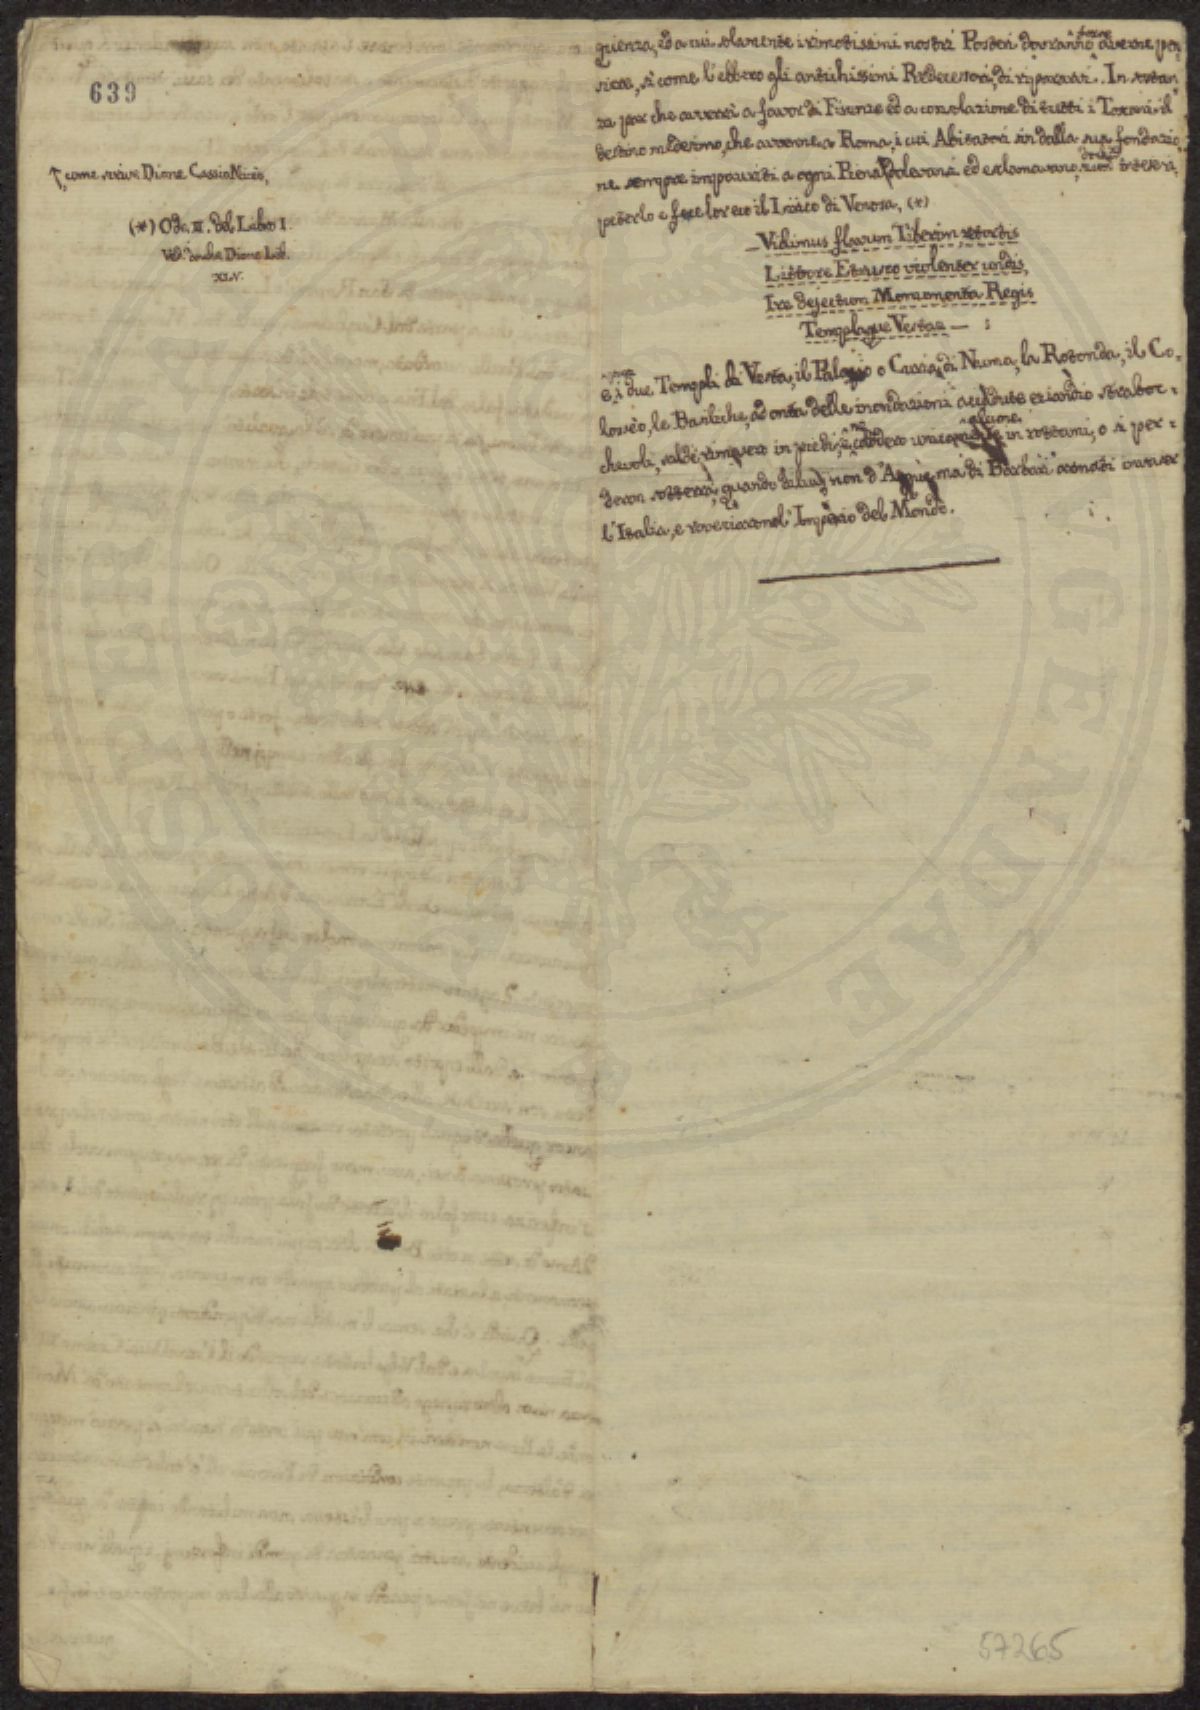 639
come scrive Dione Cassio Niceo,
(*) Ode. II. del Libro I.
Ved. anche Dione Lib.
XLV.
quenza, ed a cui solamente i rimotissimi nostri Posteri dovranno avere pen-
siere, sì come l'ebbero gli antichissimi Predecessori, di ripararvi. In sostan
za par che avverrà a favor di Firenze ed a consolazione di tutti i Toscani il
destino medesimo, che avvenne a Roma, i cui Abitatori sin dalla sua fondazio-
ne sempre impauriti a ogni Piena dolevansi ed esclamavano,
peterlo e fece loro eco il Lirico di Venosa, (*)
— Vidimus flavum Tiberim retortis
Littore Etrusco violenter undis,
Ire dejectum Monumenta Regis
Templaque Vestae — :
e i due Templi di Vesta, il Palazio o Curia di Numa, la Rotonda, il Co-
losseo, le Basiliche, ad onta delle inondazioni accadute eziandio straboc-
chevoli, saldi rimasero in piedi, in sostanza, o si per-
deron sotterra, quando diluvj non d'Acque, ma di Barbari armati invaser
l'Italia, e rovesciarono l'Imperio del Mondo.
57265